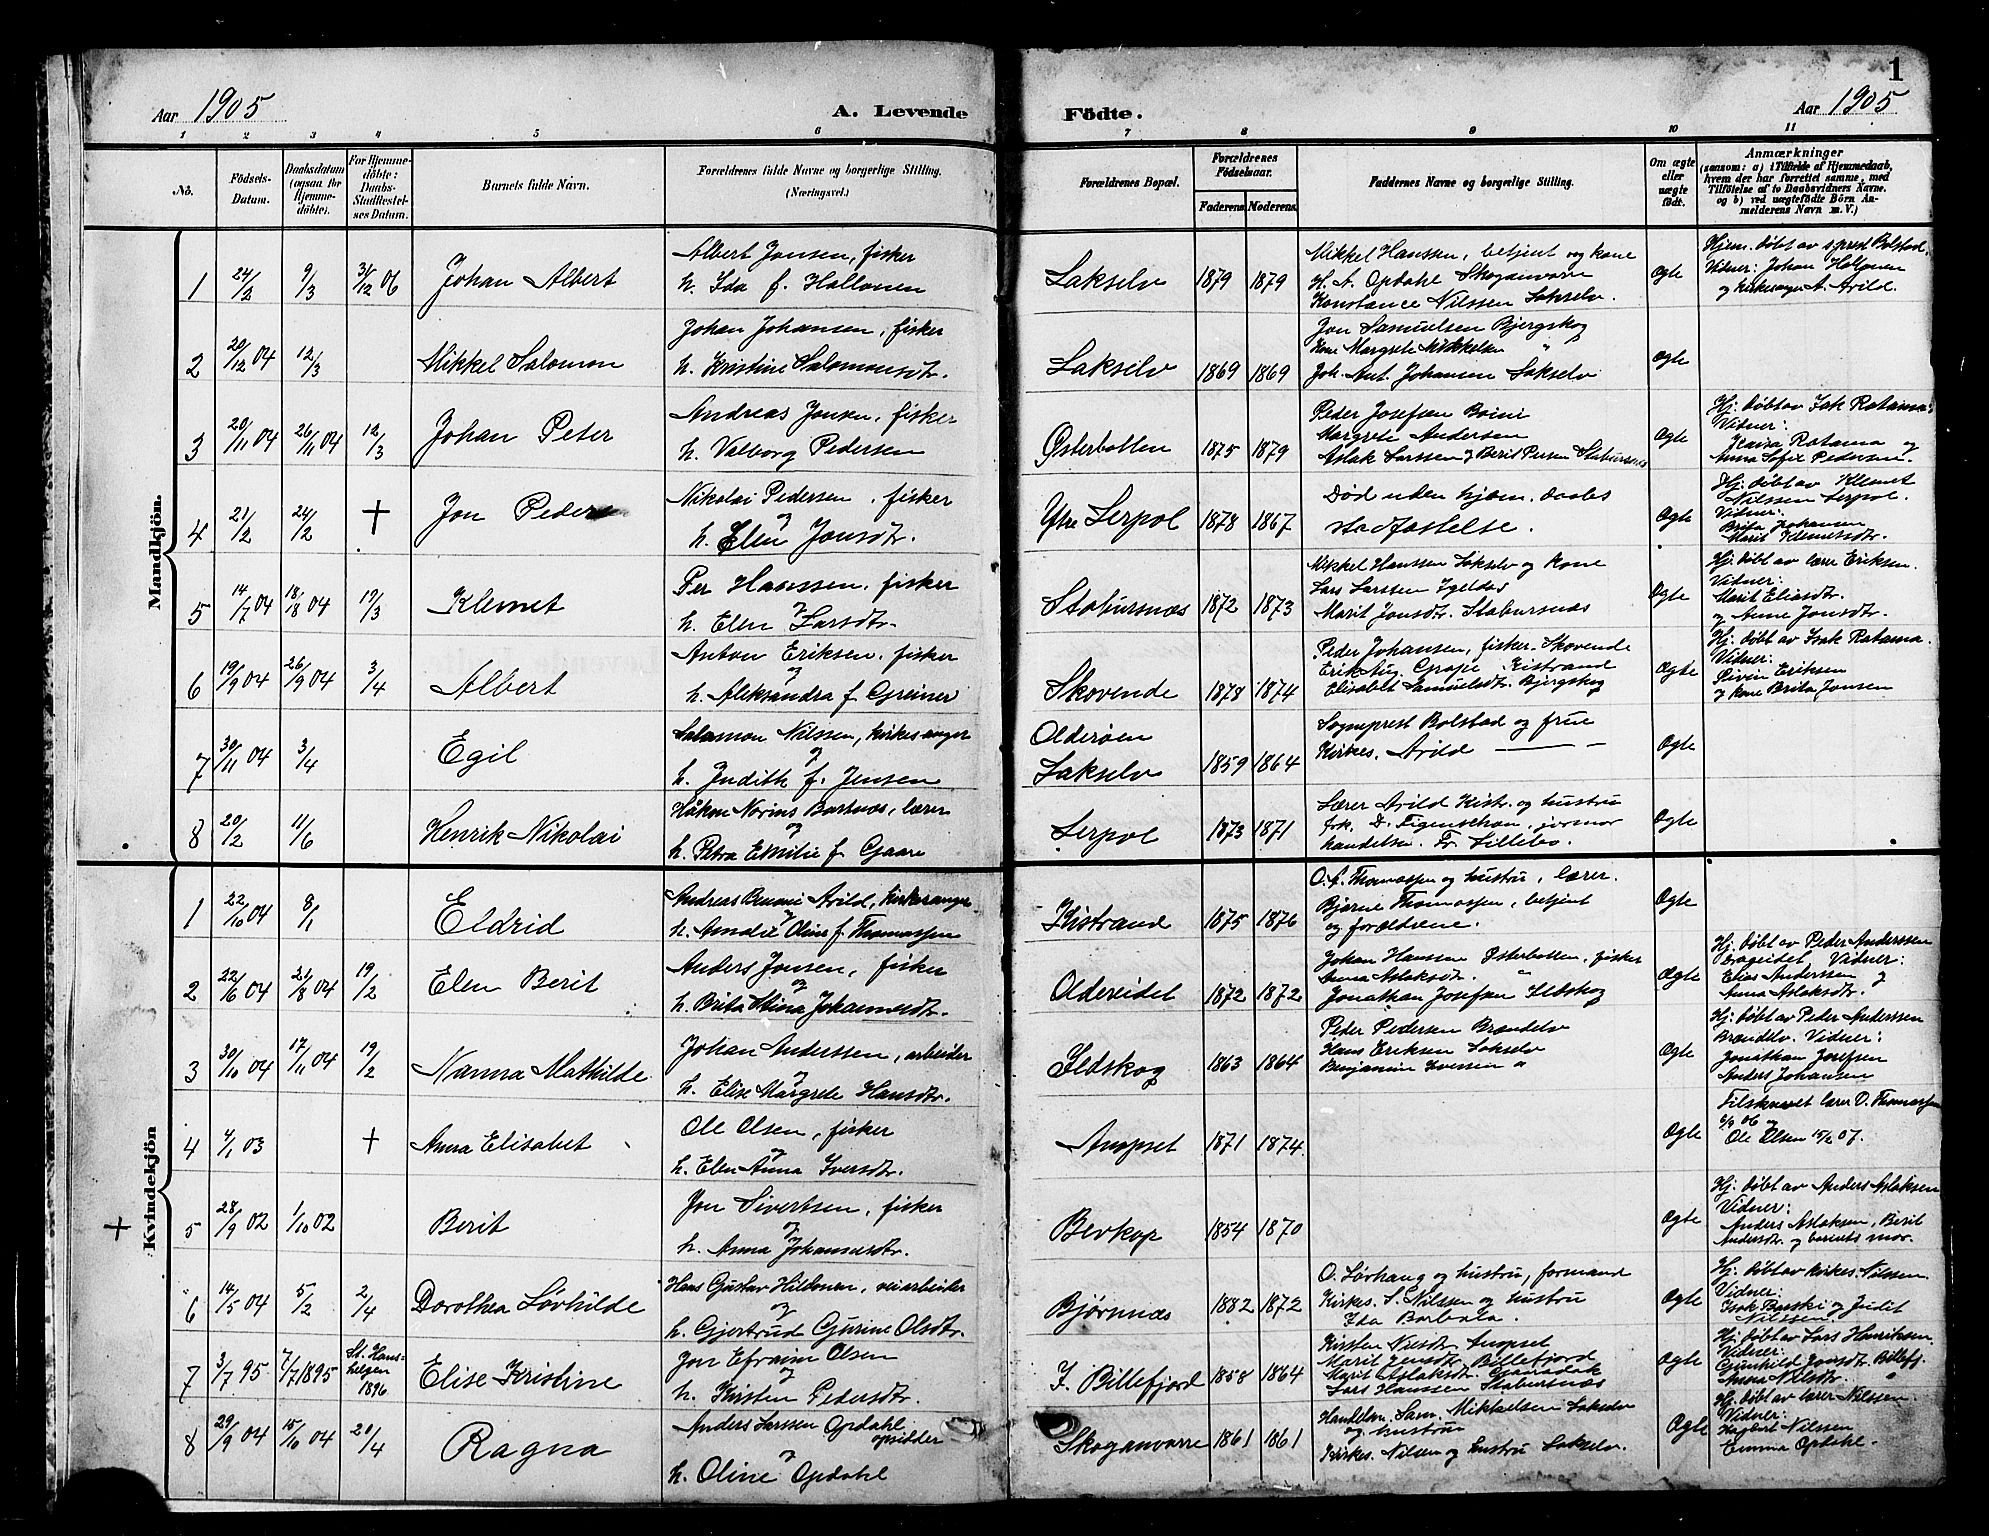 1
Aar 1905
A. Levende
Födte.
Aar 1905
1 2 3 4 5 6 7 8 9 10 11
No.
Födsels-
Datum.
Daabsdatum
(ogsaa for
Hjemme-
döbte).
For Hjemme-
döbte:
Daabs-
Stadfæstel-
ses Datum.
Barnets fulde Navn.
Forældrenes fulde Navne og borgerlige Stilling.
(Næringsvei.)
Forældrenes Bopæl.
Forældrenes
Födselsaar.
Faderens Moderens.
Faddernes Navne og borgerlige Stilling.
Om ægte
eller
uægte
födt.
Anmærkninger
(saasom: a) i Tilfælde af Hjemmedaab,
hvem der har forrettet samme, med
Tilföielse af to Daabsvidners Navne.
og b) ved uægtefödte Börn An-
melderens Navn m. V.)
Mandkjön.
1 24/2 9/3 31/12 06 Johan Albert
Albert Jonsen, fisker
h. Ida f. Hallonen
Lakselv 1879 1879
Mikkel Hanssen, betjent og kone
H. A. Opdahl Skoganvarre
Konstance Nilssen Lakselv.
Ægte
Hjem. døbt av s.prest Bolstad.
Vidner: Johan Hallonen
og kirkesanger A. Arild.
2 20/12 04 12/3 Mikkel Salomon
Johan Johansen, fisker
h. Kristine Salomonsdtr.
Lakselv 1869 1869
Jon Samuelsen Bjergskog
Kone Margrete Mikkelsen "
Joh. Ant. Johansen Lakselv
Ægte
3 20/11 04 26/11 04 12/3 Johan Peter
Andreas Jonsen, fisker
h. Valborg Pedersen
Østerbotten 1875 1879
Peder Josefsen Boini
Margrete Andersen
Aslak Larssen og Berit Persen Stabursnæs
Ægte
Hj. døbt av Isak Ratama.
Vidner:
Kaisa Ratama og
Anna Sofie Pedersen.
4 21/2 24/2 + Jon Peder
Nikolai Pedersen, fisker
og
h. Elen Jonsdtr.
Ytre Leirpol 1878 1867
Død uden hjem. daabs
stadfæstelse.
Ægte
Hj. døbt av Klemet
Nilssen Leirpol.
Vidner:
Brita Johansen
Marit Klemetsdtr.
5 14/7 04 18/18 04 19/3 Klemet
Per Hanssen, fisker
og
h. Elen Larsdtr.
Stabursnæs 1872 1873
Mikkel Hanssen Lakselv og kone
Lars Larssen Igeldas
Marit Jonsdtr. Stabursnæs
Ægte
Hj. døbt av lærer Eriksen.
Vidner:
Marit Eliasdtr.
og Anne Jonsdtr.
6 19/9 04 26/9 04 3/4 Albert
Anton Eriksen, fisker
og
h. Aleksandra f. Greiner
Skovende 1878 1874
Peder Johansen, fisker. Skovende
Erik Aug. Grape Kistrand
Elisabet Samuelsdtr. Bjergskog
Ægte
Hj. døbt av Isak Ratama.
Vidner:
Sivin Eriksen
og kone Brita Jonsen
7 30/11 04 3/4 Egil
Salamon Nilssen, kirkesanger
og
h. Judith f. Jensen
Olderøen
Lakselv 1859 1864
Sogneprest Bolstad og frue
Kirkes. Arild — —
Ægte
8 20/2 11/6 Henrik Nikolai
Håkon Norins Bartnæs, lærer
og
h. Petra Emilie f. Gaare
Leirpol 1873 1871
Lærer Arild Kistr. og hustru
frk. D. Figenschau, jormor
handelsm. Fr. Lillebo.
Ægte
Kvindekjön
1 22/10 04 8/1 Eldrid
Andreas Benoni Arild, kirkesanger
h. Amalie Oline f. Thomassen
Kistrand 1875 1876
O. A. Thomassen og hustru, lærer.
Bjarne Thomassen, betjent
og forældrene.
Ægte
2 22/6 04 21/8 04 19/2 Elen Berit
Anders Jonsen, fisker
og
h. Brita Stina Johannesdtr.
Oldereidet 1872 1872
Johan Hanssen Østerbotten, fisker
Anna Aslaksdtr. "
Jonathan Josefsen Ildskog
Ægte
Hj. døbt av Peder Anderssen
Drageidet Vidner:
Elias Anderssen og
Anna Aslaksdtr.
3 30/10 04 17/11 04 19/2 Nanna Mathilde
Johan Anderssen, arbeider
og
h. Elise Margrete Hansdtr.
Ildskog 1863 1864
Peder Pedersen Brændelv
Hans Eriksen Lakselv
Benjamine Iversen "
Ægte
Hj. døbt av Peder Anderssen
Brændelv. Vidner:
Jonathan Josefsen
Anders Johansen
4 4/1 03 + Anna Elisabet
Ole Olsen, fisker
og
h. Elen Anna Iversdtr.
Anopset 1871 1874
Ægte
Tilskrevet lærer O. Thomassen
6/9 06 og
Ole Olsen 15/2 07.
+ 5 28/9 02 1/10 02 Berit
Jon Sivertsen, fisker
og
h. Anna Johannesdtr.
Bevkop 1854 1870
Ægte
Hj. døbt av Anders Aslaksen
Vidner:
Anders Aslaksen, Berit
Andersdtr. og barnets mor.
6 14/5 04 5/2 2/4 Dorothea Lovhilde
Hans Gustav Hildonen, veiarbeider
og
h. Gjertrud Gurine Olsdtr.
Bjørnnæs 1882 1872
O. Lørhaug og hustru, formand
Kirkes. S. Nilssen og hustru
Ida Barbala.
Ægte
Hj. døbt av kirkes. Nilssen.
Vidner:
Isak Banski og Judit
Nilssen.
7 3/7 95 7/7 1895 St. Hans-
helgen
1896 Elise Kristine
Jon Efraim Olsen
h. Kirsten Pedersdtr.
I. Billefjord 1858 1864
Kirsten Nilsdtr. Anopset
Marit Jensdtr. Billefjord
Marit Aslaksdtr. Gairadak
Lars Hanssen Stabursnæs
Ægte
Hj. døbt av Lars Henriksen.
Vidner:
Gunhild Jonsdtr. Billefj.
Anna Nilsdtr. "
8 29/9 04 15/10 04 20/4 Ragna
Anders Larssen Opdahl
opsidder
og
h. Oline Opdahl
Skoganvarre 1861 1861
Handelsm. Sam. Mikkelsen Lakselv
og hustru
Kirkes. Nilsen og hustru Lakselv.
Ægte
Hj. døbt av lærer Nilssen
Vidner:
Hagbert Nilssen
Emma Opdahl.